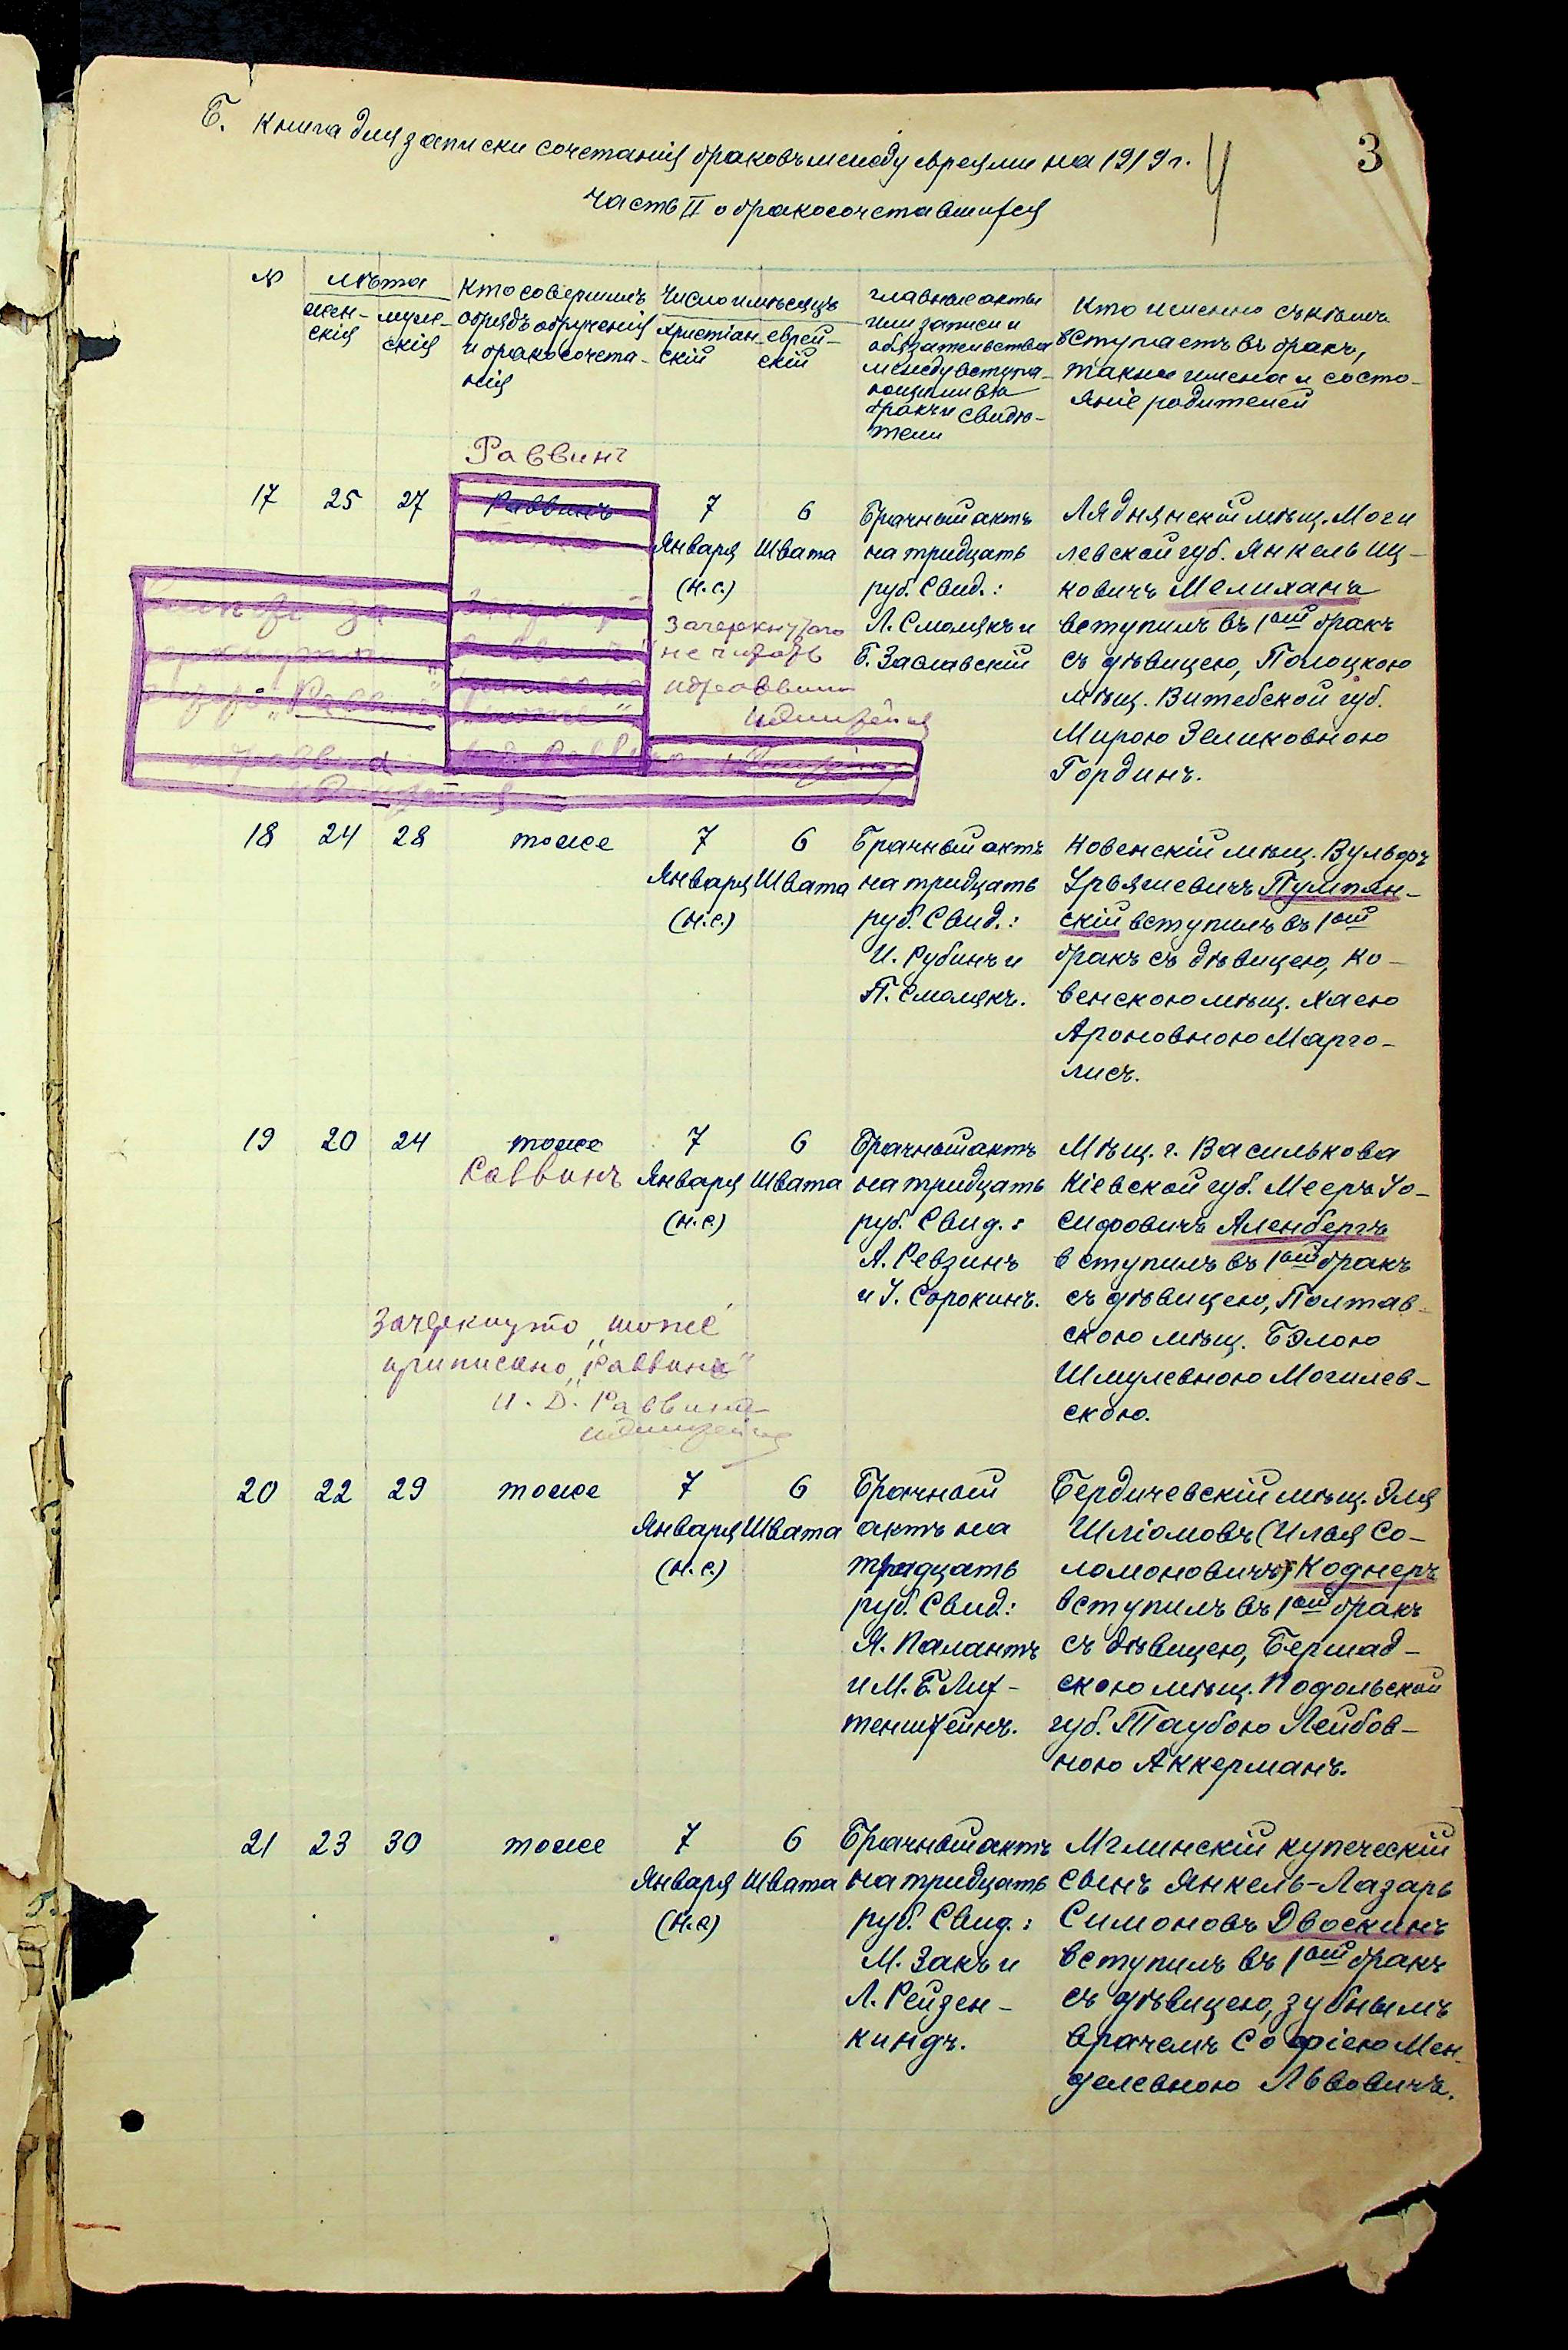 Б. Книга для записки сочетанія браковъ между евреями на 1919 г.
3
Часть II о бракосочетавшихся
№
Лѣта
жен-
скія
муж-
скія
Кто совершилъ
обрядъ обрученія
и бракосочета-
нія
Число и мѣсяцъ
христіан-
скій
еврей-
скій
Главные акты
или записи и
обязательства
между вступа-
ющими въ
бракъ и свидѣ-
тели
Кто именно съ кѣмъ
вступаетъ въ бракъ,
также имена и состо-
яніе родителей
Раввинъ
17
25
27
Раввинъ
7
Января
(н.с.)
6
Швата
Зачеркнутого
не читать
Брачный актъ
на тридцать
руб. Свид.:
Л. Смолякъ и
Б. Заславскій
Ляднянскій мѣщ. Моги
левской губ. Янкель Иц-
ковичъ Мелиханъ
вступилъ въ 1ый бракъ
съ дѣвицею, Полоцкою
мѣщ. Витебской губ.
Мирою Зеликовною
Гординъ.
18
24
28
тоже
7
Января
(н.с.)
6
Швата
Брачный актъ
на тридцать
руб. Свид.:
И. Рубинъ и
П. Смолякъ.
Ковенскій мѣщ. Вульфъ
Урьяшевичъ Пумпян-
скій вступилъ въ 1ый
бракъ съ дѣвицею, Ко-
венскою мѣщ. Хаею
Ароновною Марго-
лисъ.
19
20
24
тоже
Раввинъ
7
Января
(н.с.)
6
Швата
Брачный актъ
на тридцать
руб. Свид.:
А. Ревзинъ
и І. Сорокинъ.
Мѣщ. г. Василькова
Кіевской губ. Мееръ Іо-
сифовичъ Аленбергъ
вступилъ въ 1ый бракъ
съ дѣвицею, Полтав-
скою мѣщ. Бэлою
Шмулевною Могилев-
скою.
Зачеркнуто „тоже"
приписано „Раввинъ"
И. Д. Раввина
20
22
29
тоже
7
Января
(н.с.)
6
Швата
Брачный
актъ на
тридцать
руб. Свид:
Я. Палантъ
и М. Б. Лих-
тенштейнъ.
Бердичевскій мѣщ. Эля
Шліомовъ (Илья Со-
ломоновичъ) Коднеръ
вступилъ въ 1ый бракъ
съ дѣвицею, Бершад-
скою мѣщ. Подольской
губ. Таубою Лейбов-
ною Аккерманъ.
21
23
30
тоже
7
Января
(н.с)
6
Швата
Брачный актъ
на тридцать
руб. Свид.:
М. Закъ и
Л. Рейзен-
киндъ.
Мглинскій купеческій
сынъ Янкель-Лазарь
Симоновъ Двоскинъ
вступилъ въ 1ый бракъ
съ дѣвицею, зубнымъ
врачемъ Софіею Мен-
делевною Львовичъ.